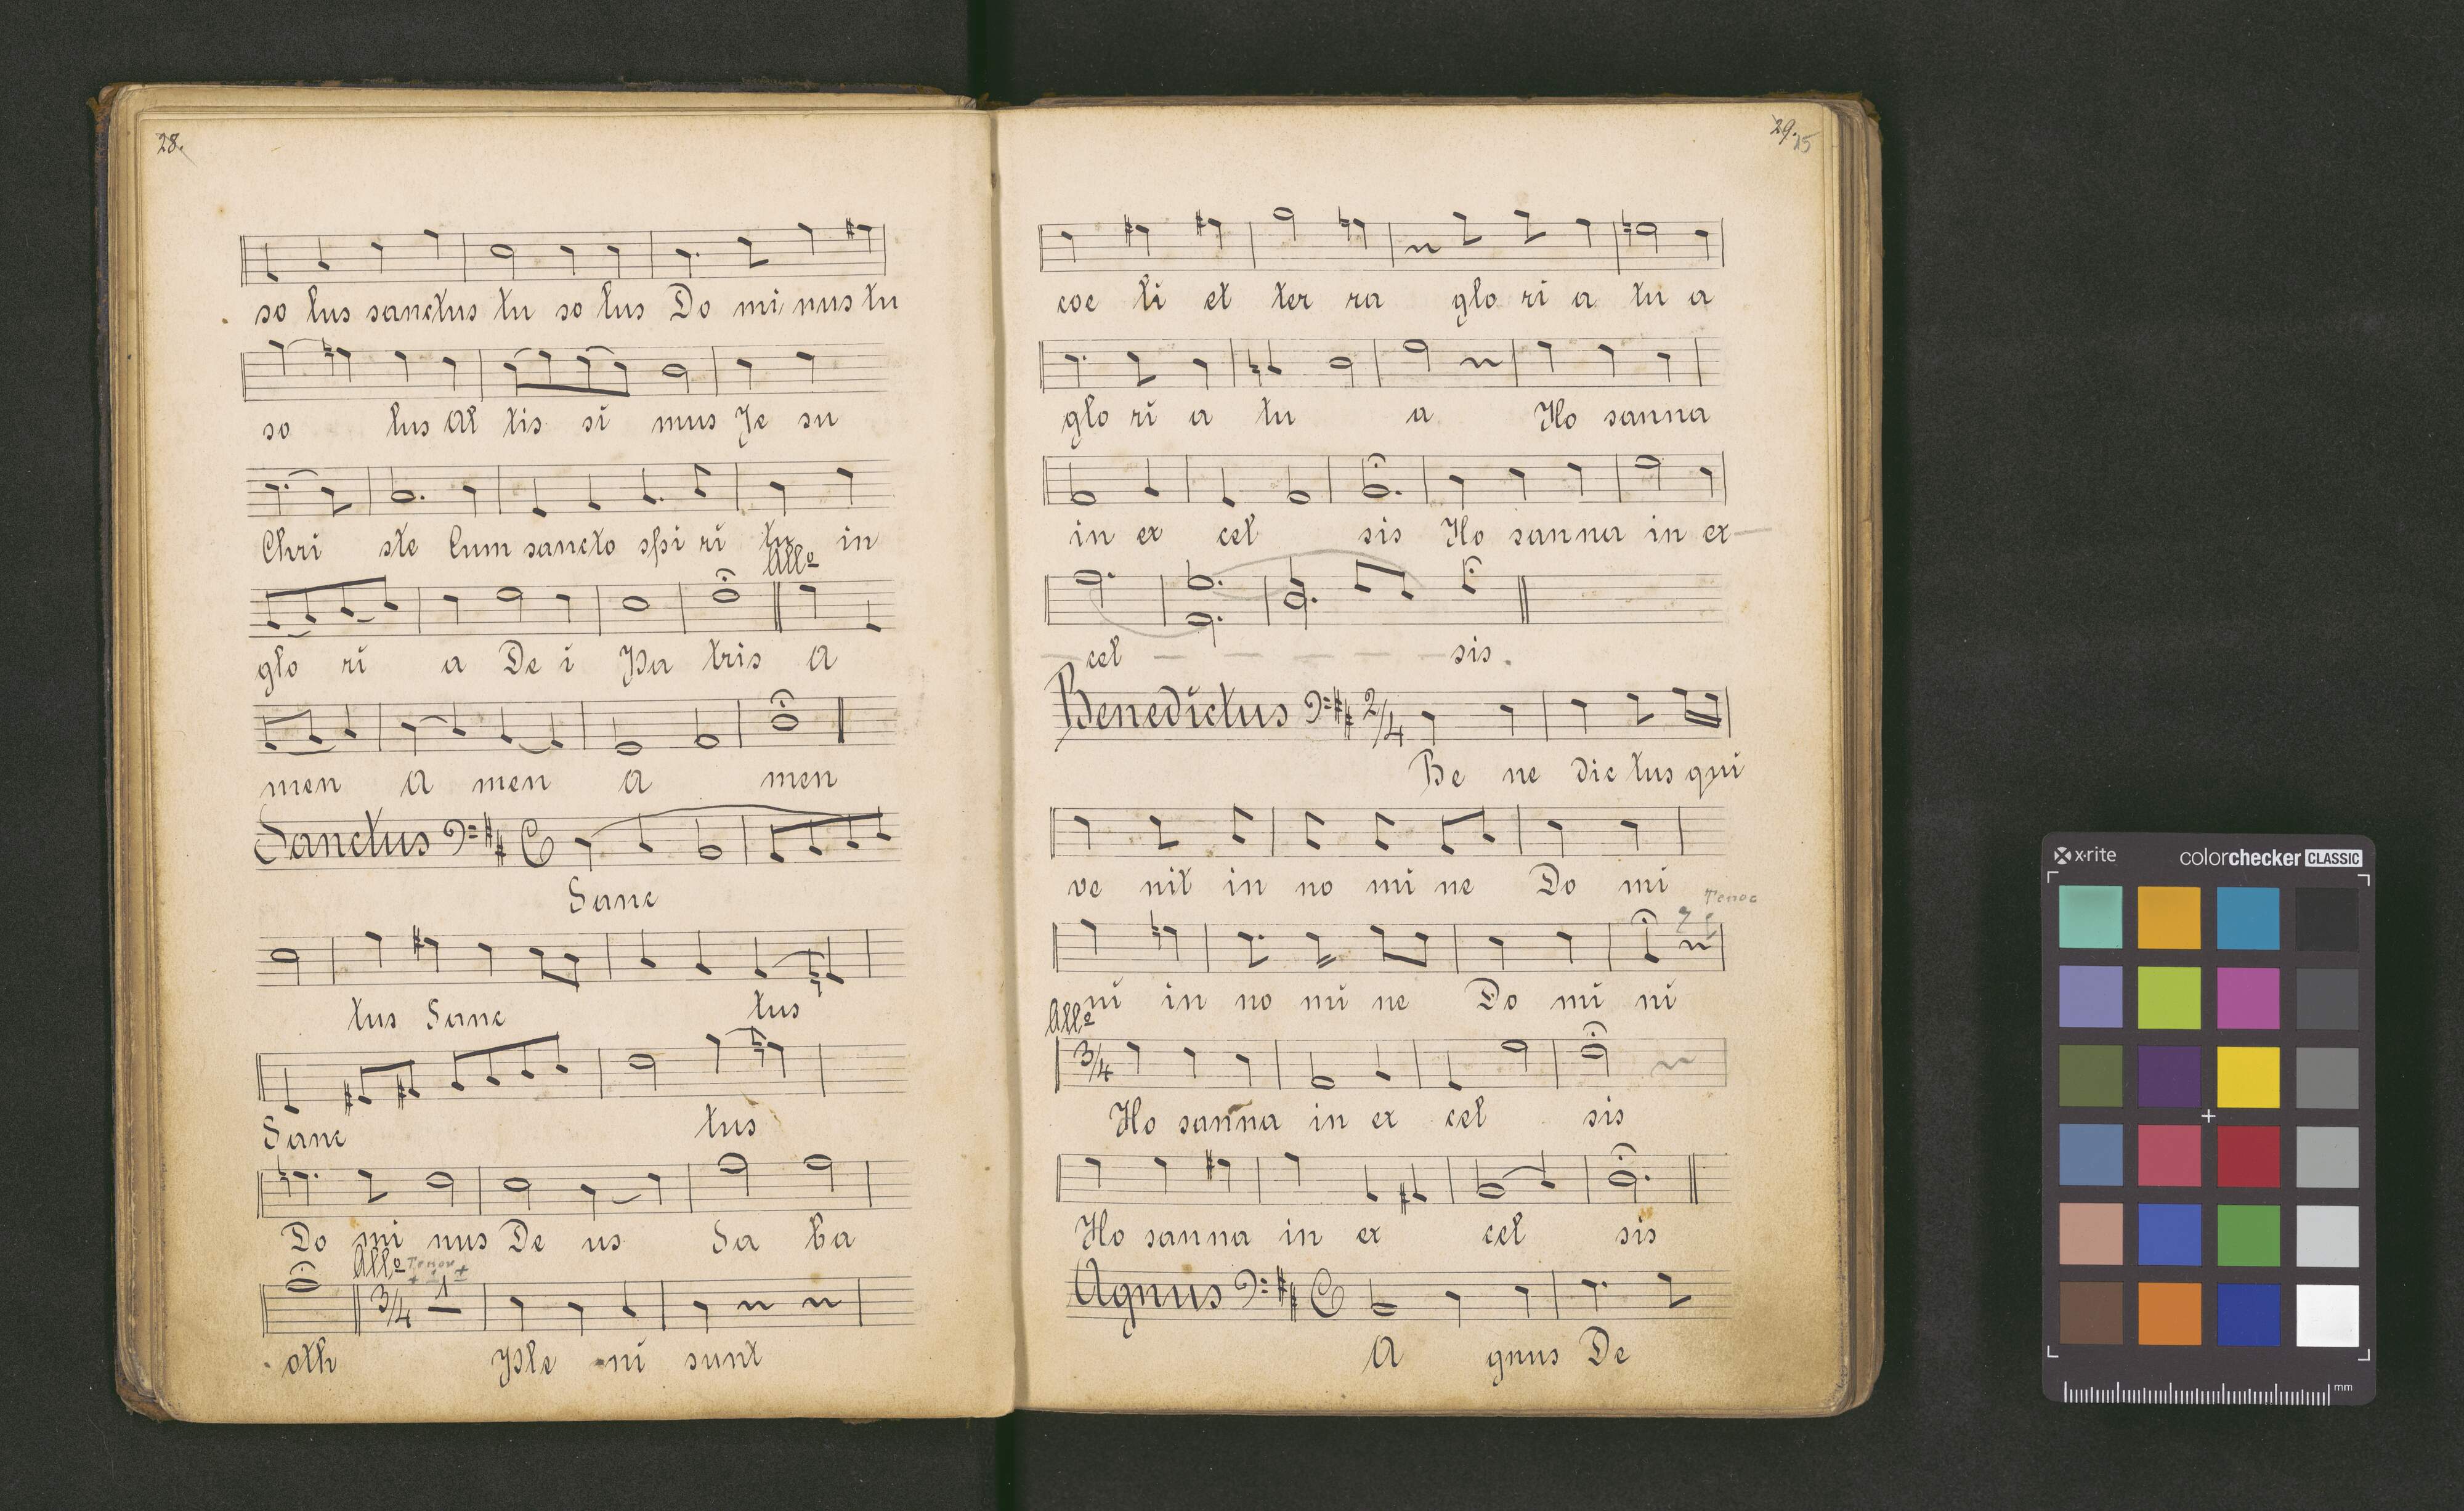 28.
so lus sanctus tu so lus Do mi nus tu
so lus Al tis si mus Je su
Chri ste Cum sancto spi ri tu in
Allo
glo ri a De i Pa tris A
men A men A men
Sanctus C
Sanc
tus Sanc tus
Sanc tus
Do mi nus De us Sa ba
Allo Tenor
3/4 1
oth Ple ni sunt
29. 15
coe li et ter ra glo ri a tu a
glo ri a tu a Ho sanna
in ex cel sis Ho sanna in ex
cel sis.
Benedictus 2/4
Be ne dic tus qui
ve nit in no mi ne Do mi
Tenor
ni in no mi ne Do mi ni
Allo
3/4
Ho sanna in ex cel sis
Ho sanna in ex cel sis
Agnus C
A gnus De
x-rite colorchecker CLASSIC
mm